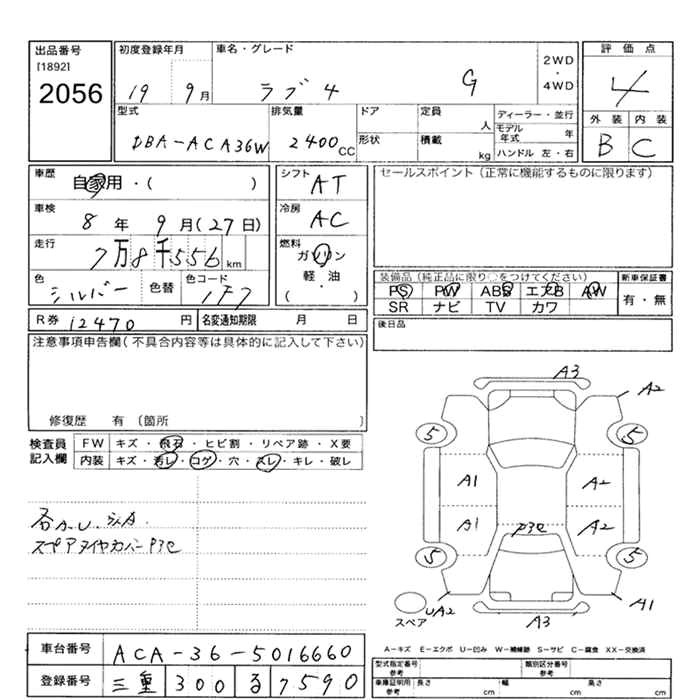 出品番号
[1892]
2056
初度登録年月
19 9月
車名・グレード
ラブ4 G
2WD
・
4WD
評価点
4
外装 内装
B C
型式
DBA-ACA36W
排気量
2400cc
ドア
形状
定員
人
積載
kg
ディーラー・並行
モデル年式 年
ハンドル 左・右
車歴
自家用・( )
車検
8年 9月(27日)
走行
7万8千556km
色
シルバー
色替
色コード
1F7
シフト
AT
冷房
AC
燃料
ガソリン
軽・油
( )
セールスポイント(正常に機能するものに限ります)
装備品(純正品に限り○をつけてください)
PS PW ABS エアB AW
SR ナビ TV カワ
新車保証書
有・無
R券 12470円
名変通知期限 月 日
後日品
注意事項申告欄(不具合内容等は具体的に記入して下さい)
修復歴 有〔箇所 〕
検査員記入欄
FW キズ・飛石・ヒビ割・リペア跡・X要
内装 キズ・汚レ・コゲ・穴・スレ・キレ・破レ
各カ.U.
スペアタイヤカバーP3C
A3
A2
5 5
A1 A2
A1 P3C A2
5 5
スペア
UA2
A3
A1
A-キズ E-エクボ U-凹み W-補修跡 S-サビ C-腐食 XX-交換済
車台番号 ACA-36-5016660
登録番号 三重 300 る 7590
型式指定番号
参考
類別区分番号
参考
車庫証明用
参考
長さ cm 幅 cm 高さ cm